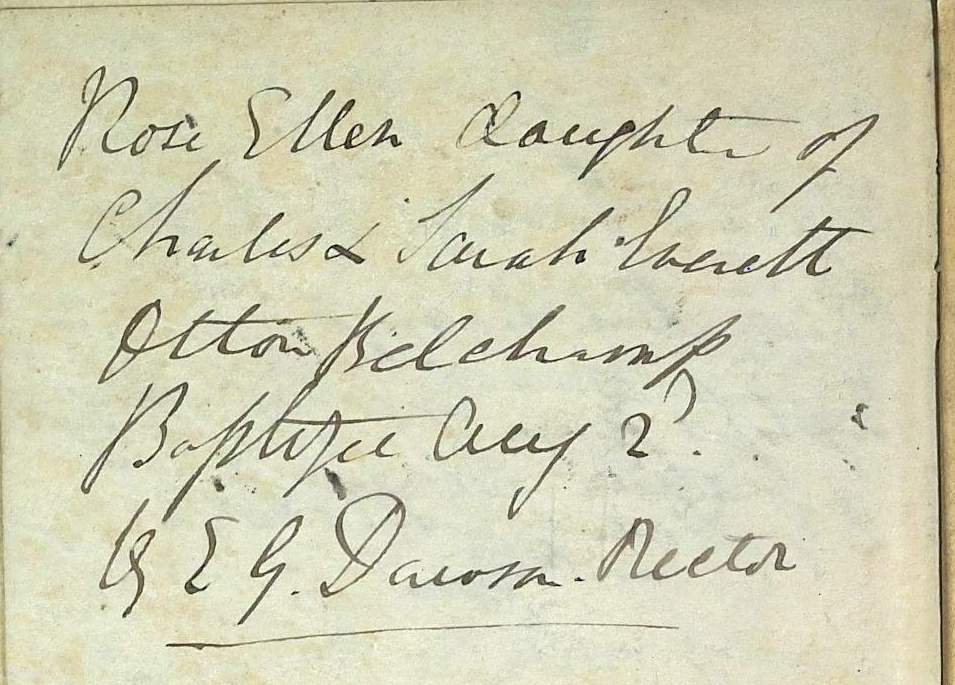 Rose Ellen daughter of
Charles & Sarah Everett
Otton Belchamp
Baptized Aug 2d.
By E G. Dawson. Rector